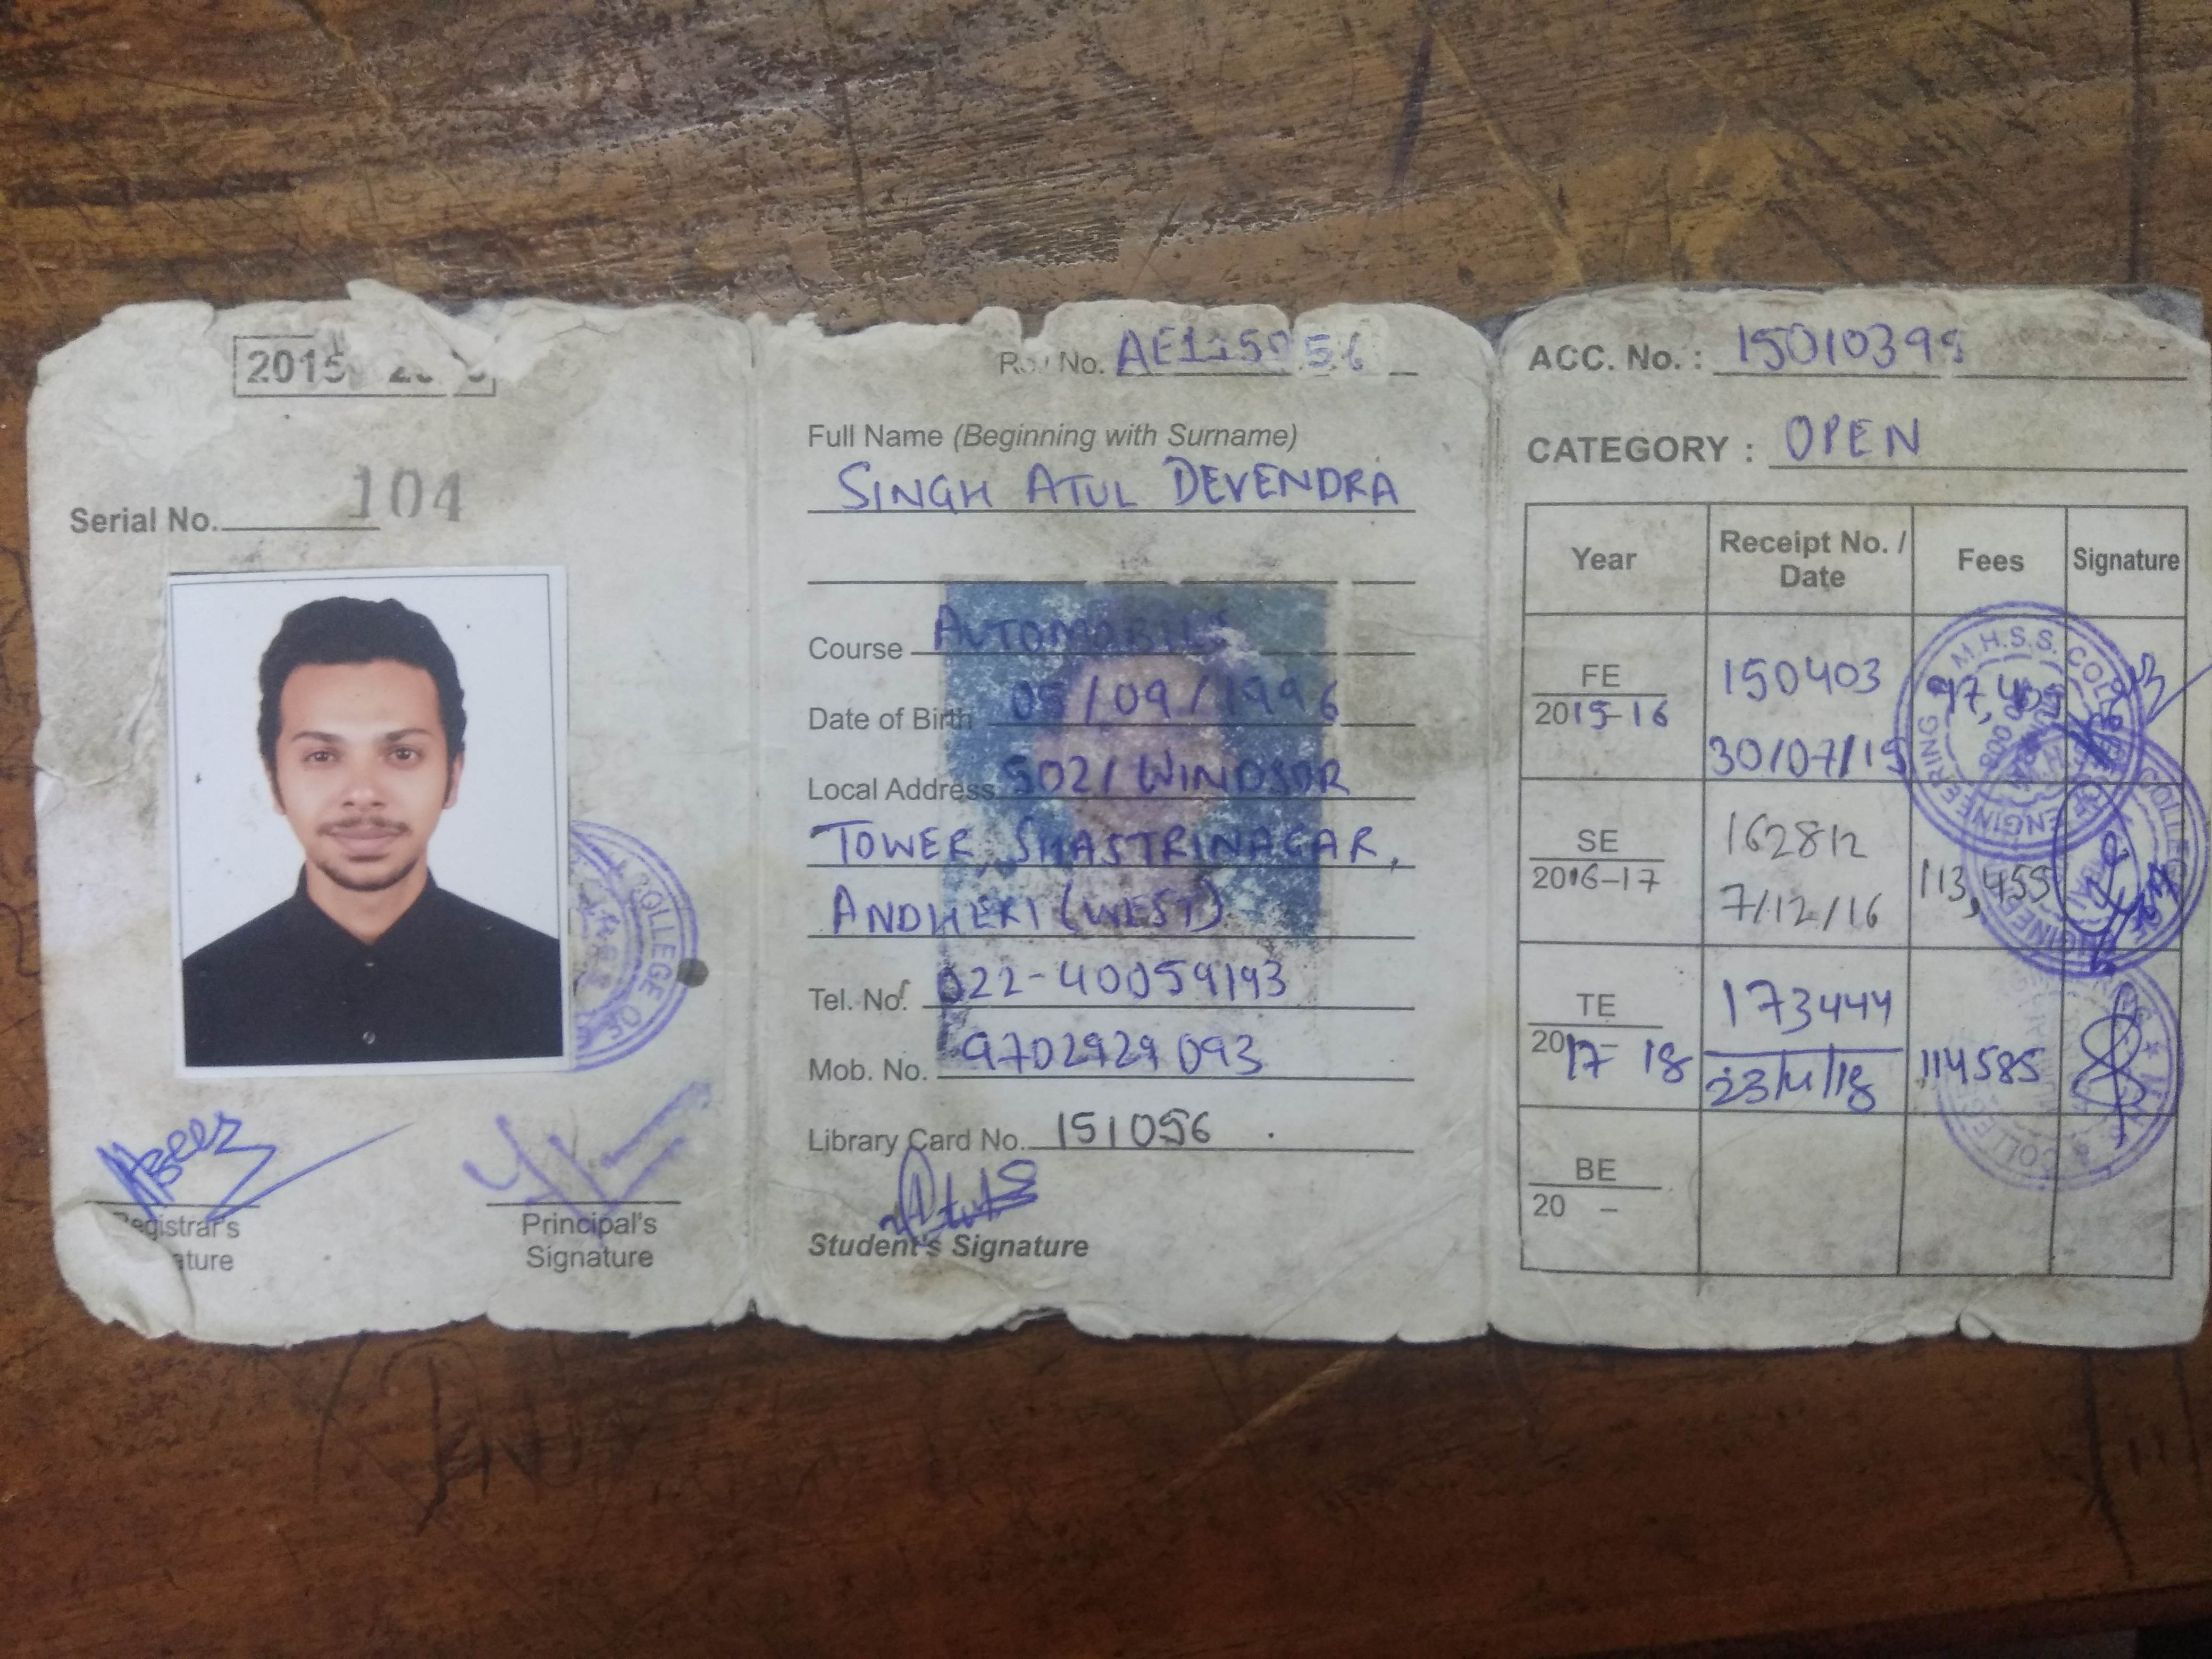 2015
Serial No. 104
Registrar's
Principal's
Signature
Roll No.
Full Name (Beginning with Surname)
SINGH ATUL DEVENDRA
Course AUTOMOBILE
Date of Birth 05/09/1996
Local Address 502/ WINDSOR
TOWER, SHASTRINAGAR,
ANDHERI (WEST)
Tel. No. 022-40059193
Mob. No. 9702929093
Library Card No. 151056
Student's Signature
ACC. No. :
CATEGORY : OPEN
Year Receipt No. / Date Fees Signature
FE 2015-16 150403 30/07/15
SE 2016-17 162812 7/12/16 113,455
TE 2017-18 173444 114585
BE 20 –
M.H.S.S. COLLEGE
ENGINEERING
COLLEGE OF